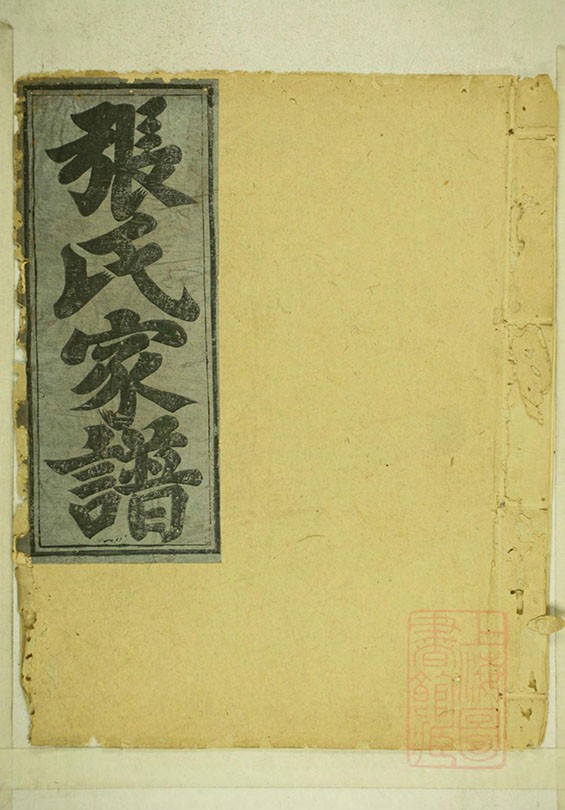 張氏家譜
上海圖書館藏